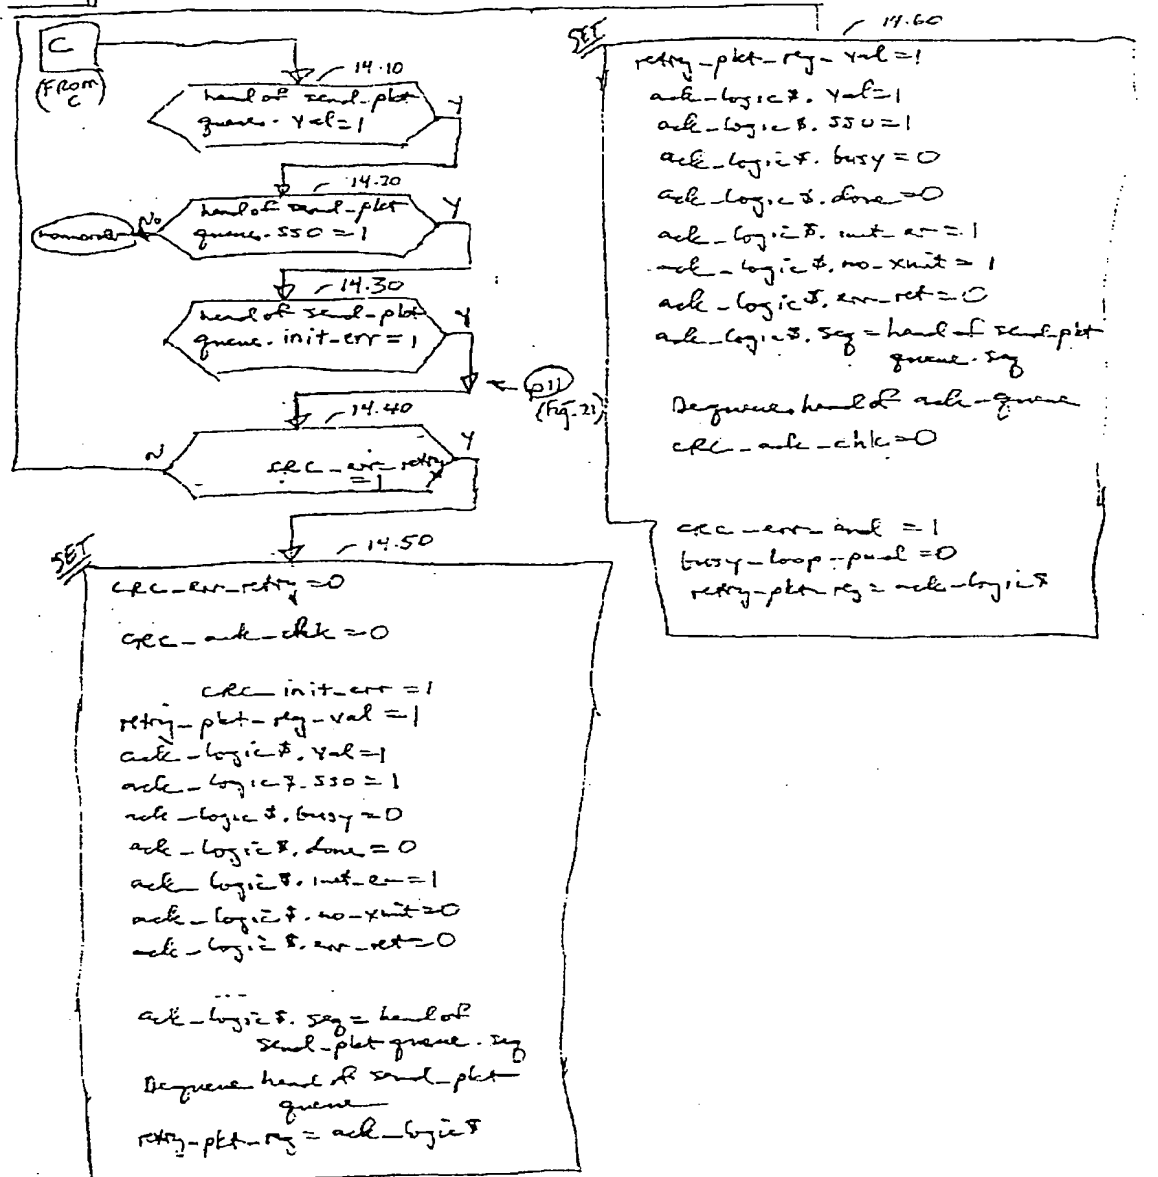 C
(FROM C)
14.10
head of send_pkt
queue. val=1
Y
14.20
head of send_pkt
queue. SSO = 1
Y
No
14.30
head of send_pkt
queue. init-err = 1
Y
p11
(Fig. 21)
14.40
CRC_err_retry
= 1
Y
N
14.50
SET
CRC_err_retry=0
CRC_ack_chk=0
CRC_init_err=1
retry_pkt_reg_val=1
ack_logic$.val=1
ack_logic$.SSO=1
ack_logic$.busy=0
ack_logic$.done=0
ack_logic$.init_err=1
ack_logic$.no_xmit=0
ack_logic$.err_ret=0
...
ack_logic$.seq=head of
send_pkt queue.seq
Dequeue head of send_pkt
queue
retry_pkt_reg=ack_logic$
14.60
SET
retry_pkt_reg_val=1
ack_logic$.val=1
ack_logic$.SSO=1
ack_logic$.busy=0
ack_logic$.done=0
ack_logic$.init_err=1
ack_logic$.no_xmit=1
ack_logic$.err_ret=0
ack_logic$.seq=head of send_pkt
queue.seq
Dequeue head of ack_queue
CRC_ack_chk=0
CRC_err_and =1
busy_loop_pand=0
retry_pkt_reg=ack_logic$